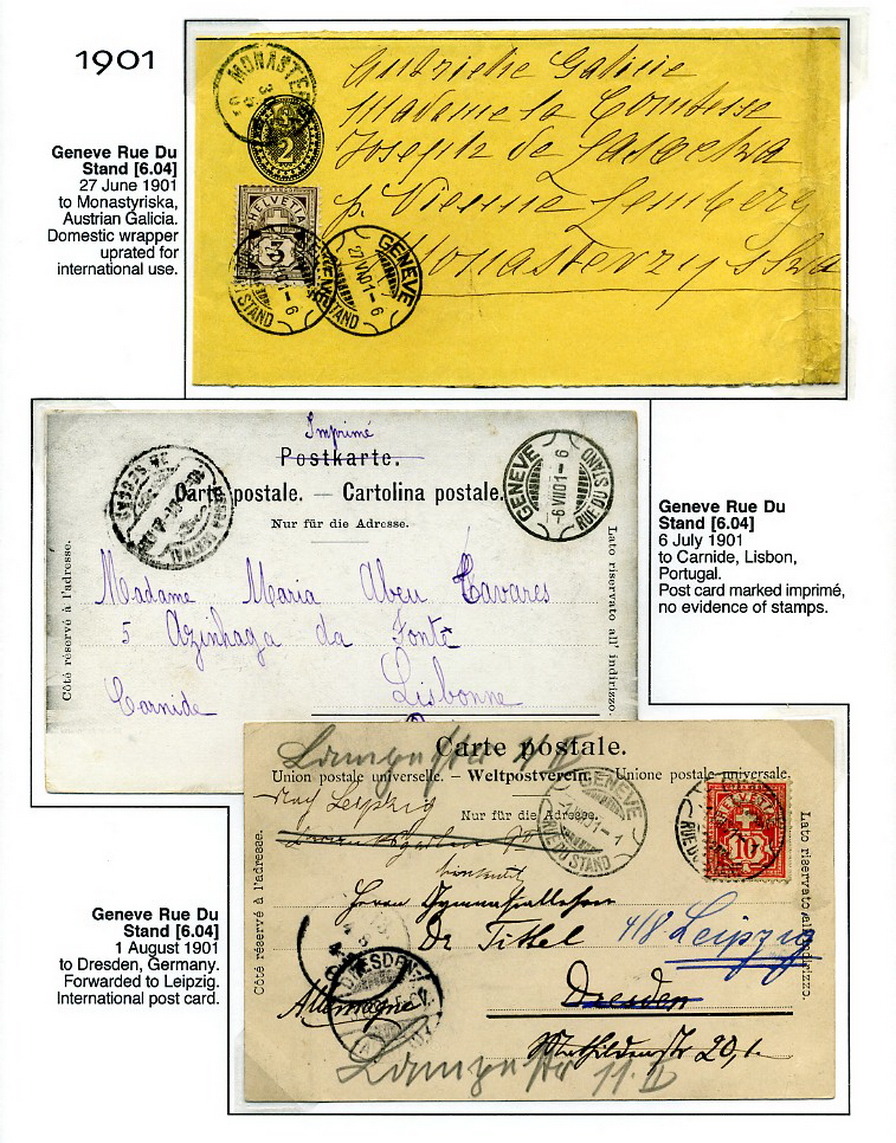 1901
Geneve Rue Du
Stand [6.04]
27 June 1901
to Monastyriska,
Austrian Galicia.
Domestic wrapper
uprated for
international use.
MONASTER
2
HELVETIA
GENEVE
27 VI 01-6
GENEVE
STAND
Autriche Galicie
Madame la Comtesse
Joseph de
p. Vienne Lemberg
Imprimé
Postkarte.
Carte postale. — Cartolina postale.
Nur für die Adresse.
GENEVE
-6 VII 01-6
RUE DU STAND
Côté réservé à l'adresse.
Lato riservato all' indirizzo.
Madame Maria Abeu Tavares
5 Azinhaga da Fonte
Carnide Lisbonne
Geneve Rue Du
Stand [6.04]
6 July 1901
to Carnide, Lisbon,
Portugal.
Post card marked imprimé,
no evidence of stamps.
Carte postale.
Union postale universelle. — Weltpostverein. — Unione postale universale.
Nur für die Adresse.
nach Leipzig
GENEVE
RUE DU STAND
HELVETIA
10
RUE DU
Côté réservé à l'adresse.
Lato riservato all' indirizzo.
Herrn Gymnasiallehrer
Dr Titel 4/8 Leipzig
DRESDEN
Allemagne
Dresden
Mathildenstr 20, I.
Geneve Rue Du
Stand [6.04]
1 August 1901
to Dresden, Germany.
Forwarded to Leipzig.
International post card.